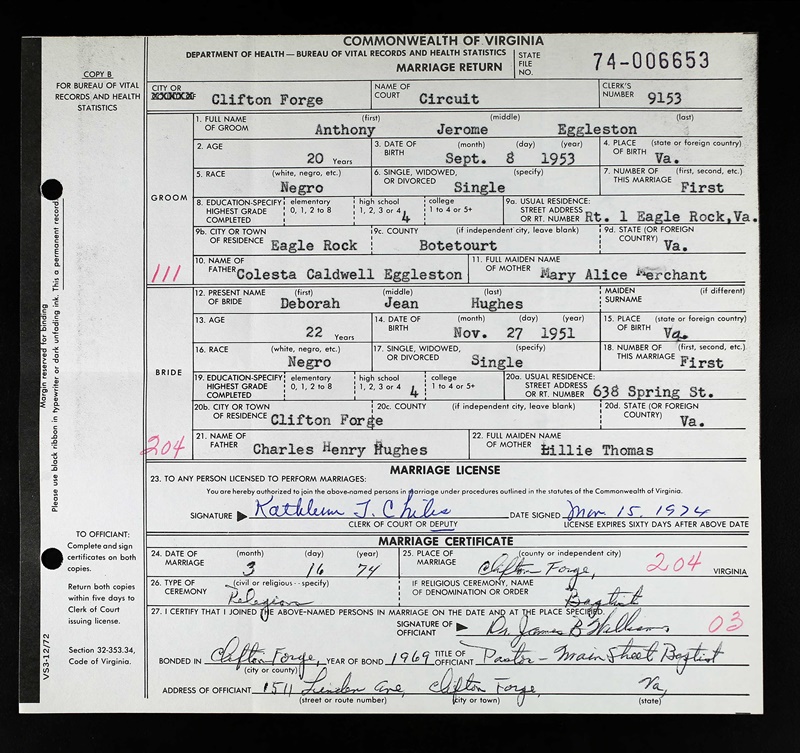 COMMONWEALTH OF VIRGINIA
DEPARTMENT OF HEALTH — BUREAU OF VITAL RECORDS AND HEALTH STATISTICS
MARRIAGE RETURN
STATE FILE NO. 74-006653
COPY B
FOR BUREAU OF VITAL RECORDS AND HEALTH STATISTICS
CITY OR Clifton Forge NAME OF COURT Circuit CLERK'S NUMBER 9153
GROOM
1. FULL NAME OF GROOM (first) Anthony (middle) Jerome (last) Eggleston
2. AGE 20 Years 3. DATE OF BIRTH (month) (day) (year) Sept. 8 1953 4. PLACE OF BIRTH (state or foreign country) Va.
5. RACE (white, negro, etc.) Negro 6. SINGLE, WIDOWED, OR DIVORCED (specify) Single 7. NUMBER OF THIS MARRIAGE (first, second, etc.) First
8. EDUCATION-SPECIFY HIGHEST GRADE COMPLETED elementary 0, 1, 2 to 8 high school 1, 2, 3 or 4 4 college 1 to 4 or 5+ 9a. USUAL RESIDENCE: STREET ADDRESS OR RT. NUMBER Rt. 1 Eagle Rock, Va.
9b. CITY OR TOWN OF RESIDENCE Eagle Rock 9c. COUNTY (if independent city, leave blank) Botetourt 9d. STATE (OR FOREIGN COUNTRY) Va.
111
10. NAME OF FATHER Colesta Caldwell Eggleston 11. FULL MAIDEN NAME OF MOTHER Mary Alice Merchant
BRIDE
12. PRESENT NAME OF BRIDE (first) Deborah (middle) Jean (last) Hughes MAIDEN SURNAME (if different)
13. AGE 22 Years 14. DATE OF BIRTH (month) (day) (year) Nov. 27 1951 15. PLACE OF BIRTH (state or foreign country) Va.
16. RACE (white, negro, etc.) Negro 17. SINGLE, WIDOWED, OR DIVORCED (specify) Single 18. NUMBER OF THIS MARRIAGE (first, second, etc.) First
19. EDUCATION-SPECIFY HIGHEST GRADE COMPLETED elementary 0, 1, 2 to 8 high school 1, 2, 3 or 4 4 college 1 to 4 or 5+ 20a. USUAL RESIDENCE: STREET ADDRESS OR RT. NUMBER 638 Spring St.
20b. CITY OR TOWN OF RESIDENCE Clifton Forge 20c. COUNTY (if independent city, leave blank) 20d. STATE (OR FOREIGN COUNTRY) Va.
204
21. NAME OF FATHER Charles Henry Hughes 22. FULL MAIDEN NAME OF MOTHER Lillie Thomas
MARRIAGE LICENSE
23. TO ANY PERSON LICENSED TO PERFORM MARRIAGES:
You are hereby authorized to join the above-named persons in marriage under procedures outlined in the statutes of the Commonwealth of Virginia.
SIGNATURE Kathleen T. Chiles DATE SIGNED Mar 15, 1974
CLERK OF COURT OR DEPUTY LICENSE EXPIRES SIXTY DAYS AFTER ABOVE DATE
MARRIAGE CERTIFICATE
24. DATE OF MARRIAGE (month) 3 (day) 16 (year) 74 25. PLACE OF MARRIAGE (county or independent city) Clifton Forge, 204 VIRGINIA
26. TYPE OF CEREMONY (civil or religious - specify) Religion IF RELIGIOUS CEREMONY, NAME OF DENOMINATION OR ORDER Baptist
27. I CERTIFY THAT I JOINED THE ABOVE-NAMED PERSONS IN MARRIAGE ON THE DATE AND AT THE PLACE SPECIFIED.
SIGNATURE OF OFFICIANT Dr. James B Williams 03
BONDED IN Clifton Forge, (city or county) YEAR OF BOND 1969 TITLE OF OFFICIANT Pastor - Main Street Baptist
ADDRESS OF OFFICIANT 1511 Linden Ave, Clifton Forge, Va,
(street or route number) (city or town) (state)
Margin reserved for binding
Please use black ribbon in typewriter or dark unfading ink. This a permanent record
TO OFFICIANT:
Complete and sign certificates on both copies.
Return both copies within five days to Clerk of Court issuing license.
Section 32-353.34, Code of Virginia.
VS3-12/72